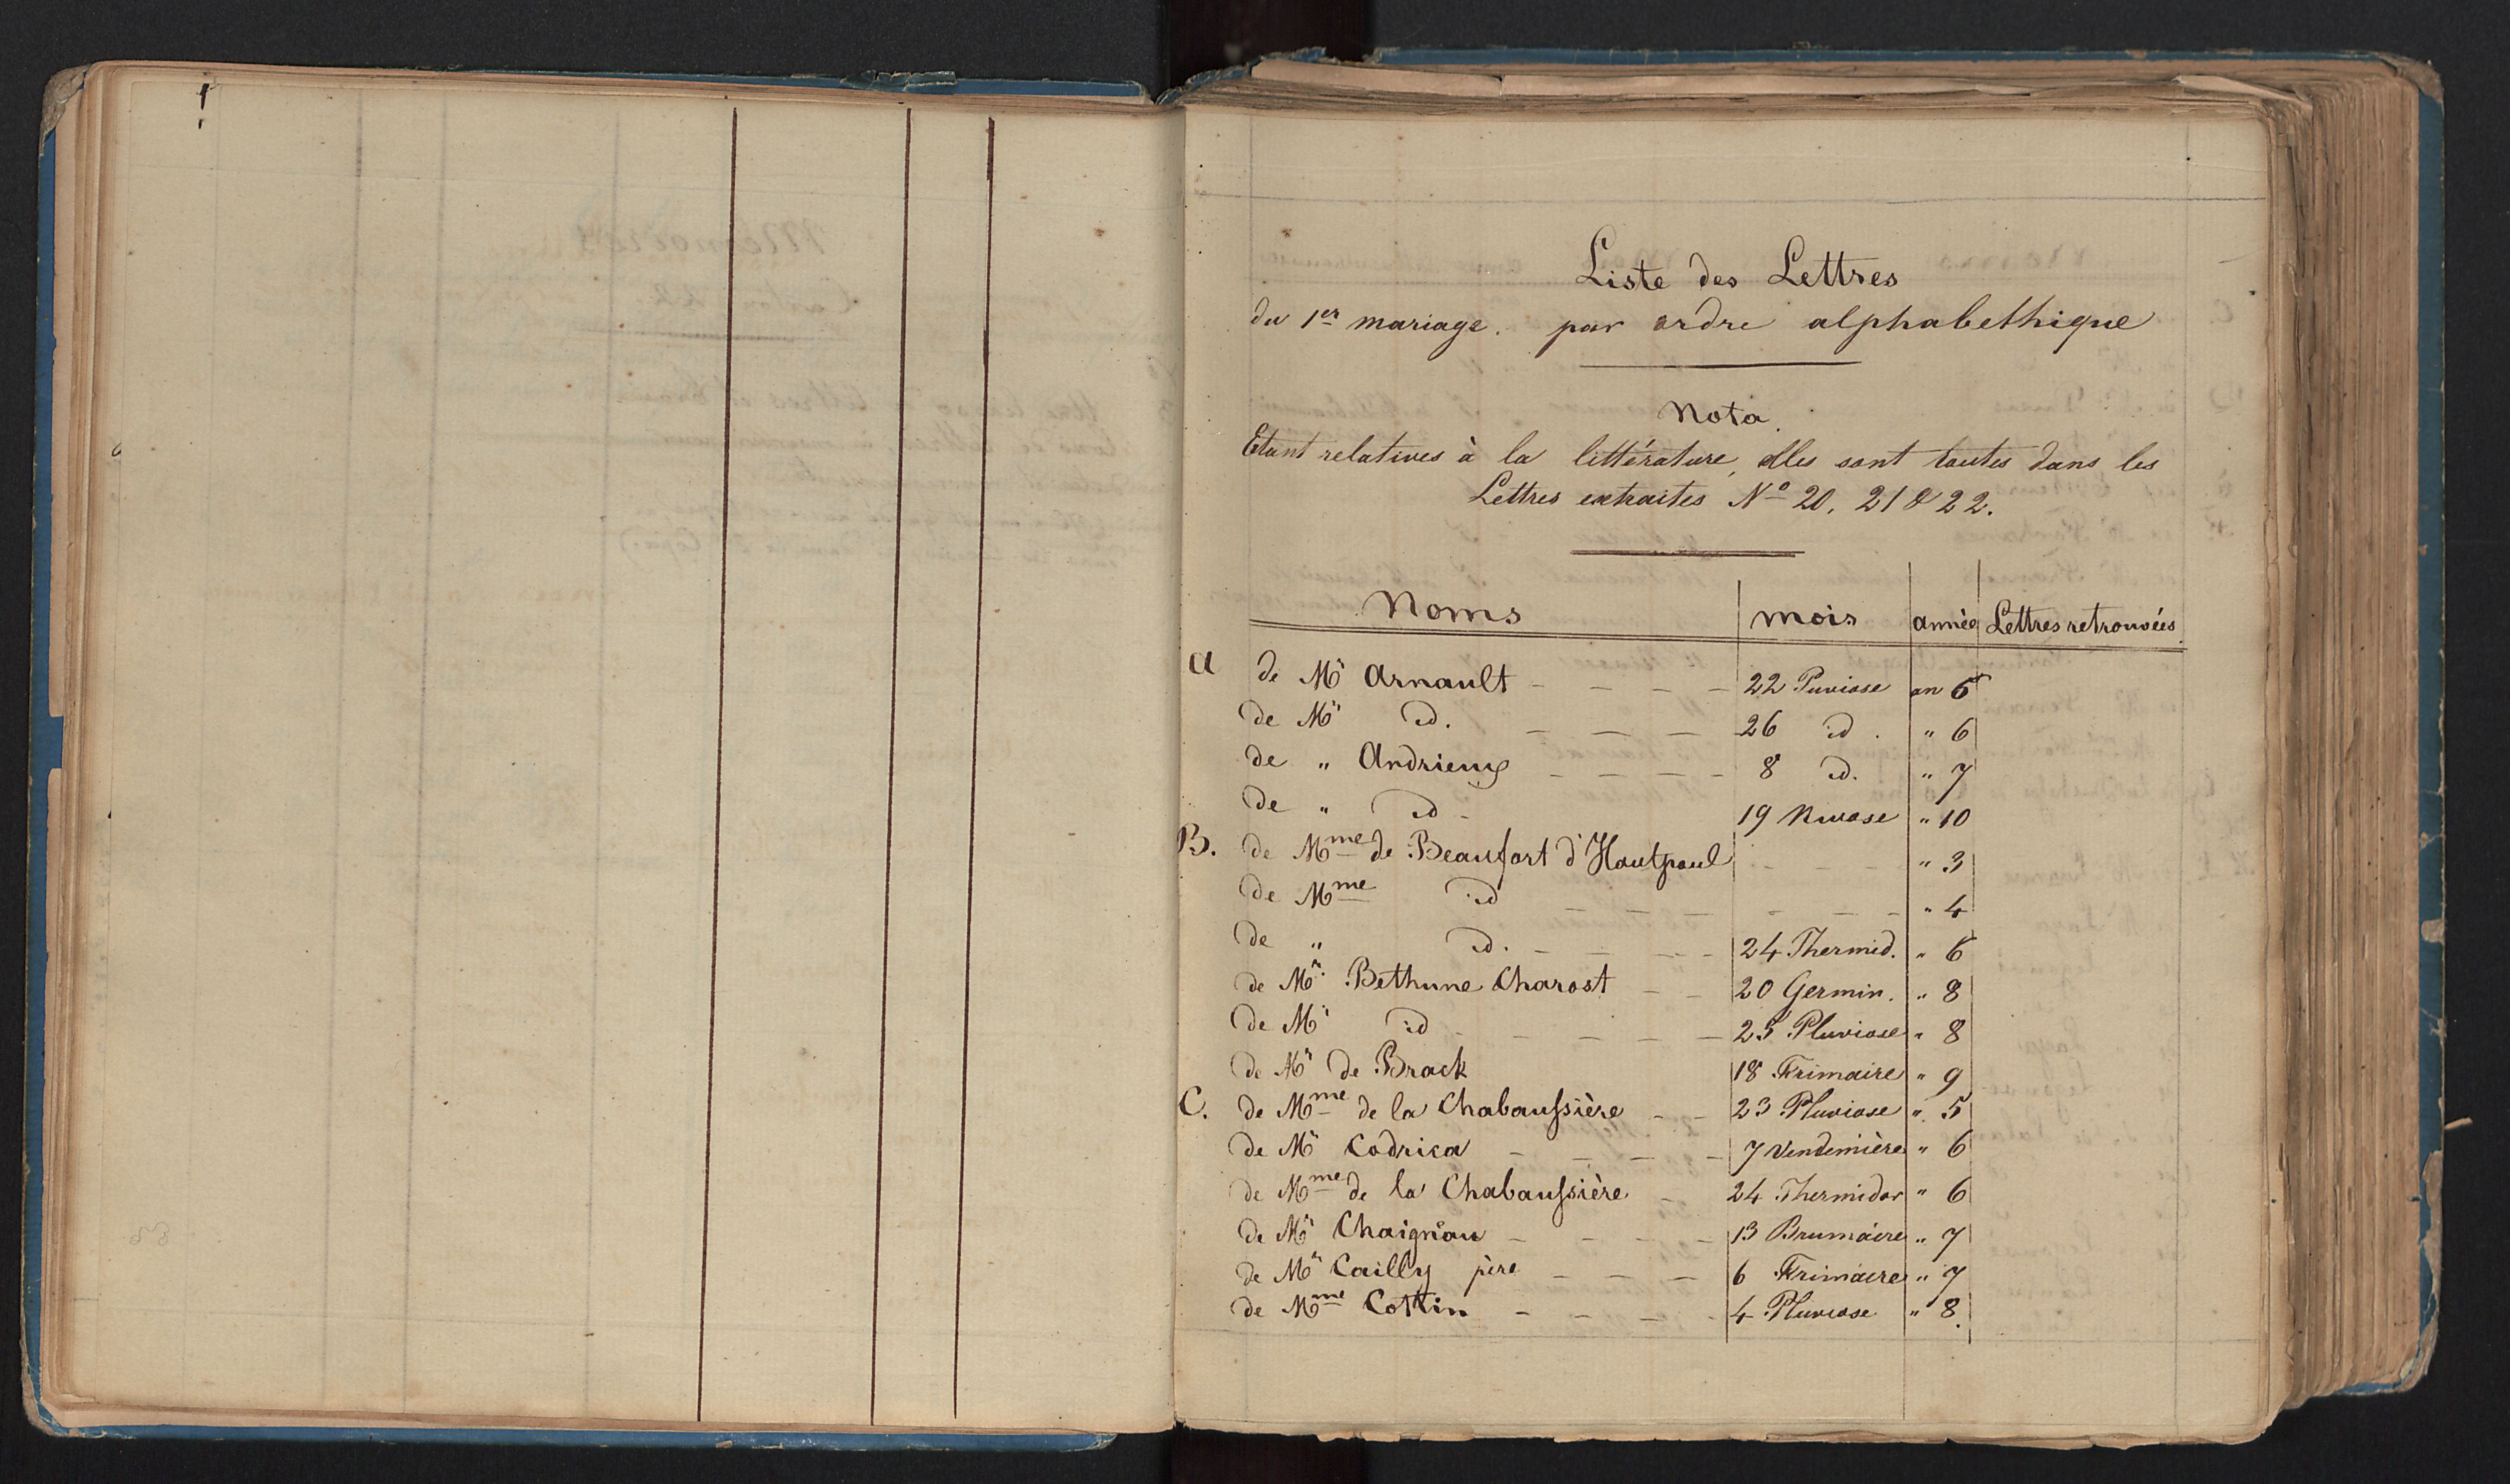 Liste des Lettres
du 1er mariage. par ordre alphabethique
Nota.
Etant relatives à la littérature, elles sont toutes dans les
Lettres extraites No 20, 21 & 22.
Noms mois année Lettres retrouvées
A de Mr Arnault - - - - 22 Puviose an 6
de Mr id. - - - 26 id. " 6
de " Andrieux - - - - 8 id. " 7
de " id - 19 Nivose " 10
B. de Mme de Beaufort d'Hautpoul - - - " 3
de Mme id - - - - - - " 4
de " id. - - - - 24 Thermid. " 6
de Mr. Bethune Charost - - 20 Germin. " 8
de Mr id - - - - - 25 Pluviose " 8
de Mr de Brack 18 Frimaire " 9
C. de Mme de la Chabaussière - - 23 Pluviose " 5
de Mr Codrica - - - - 7 Vendemière " 6
de Mme de la Chabaussière - 24 Thermidor " 6
de Mr Chaignau - - - - 13 Brumaire " 7
de Mr Cailly père - - - 6 Frimaire " 7
de Mme Cottin - - - - 4 Pluviose " 8.